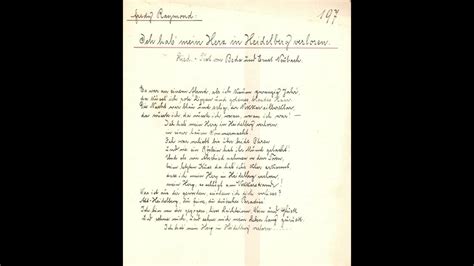 Fredy Raymond.
197
Ich hab' mein Herz in Heidelberg verloren.
Lied. - Text von Beda und Ernst Neubach.
Es war an einem Abend, als ich kaum zwanzig Jahr',
da küsst' ich rote Lippen und goldnes, blondes Haar.
Die Nacht war blau und selig, der Neckar silberklar,
da wusste ich, da wusste ich, woran, woran ich war:
Ich hab' mein Herz in Heidelberg verloren
in einer lauen Sommernacht.
Ich war verliebt bis über beide Ohren
und wie ein Röslein hat ihr Mund gelacht.
Und als wir Abschied nahmen vor den Toren,
beim letzten Kuss da hab' ich's klar erkannt,
dass ich mein Herz in Heidelberg verloren,
mein Herz, es schlägt am Neckarstrand!
Was ist aus dir geworden,
Alt-Heidelberg, du Feine, du deutsches Paradies
Ich bin von dir gezogen, liess Leichtsinn, Wein und Glück
und sehne mich, und sehne mich mein Leben lang zurück.
Ich hab' mein Herz in Heidelberg verloren...